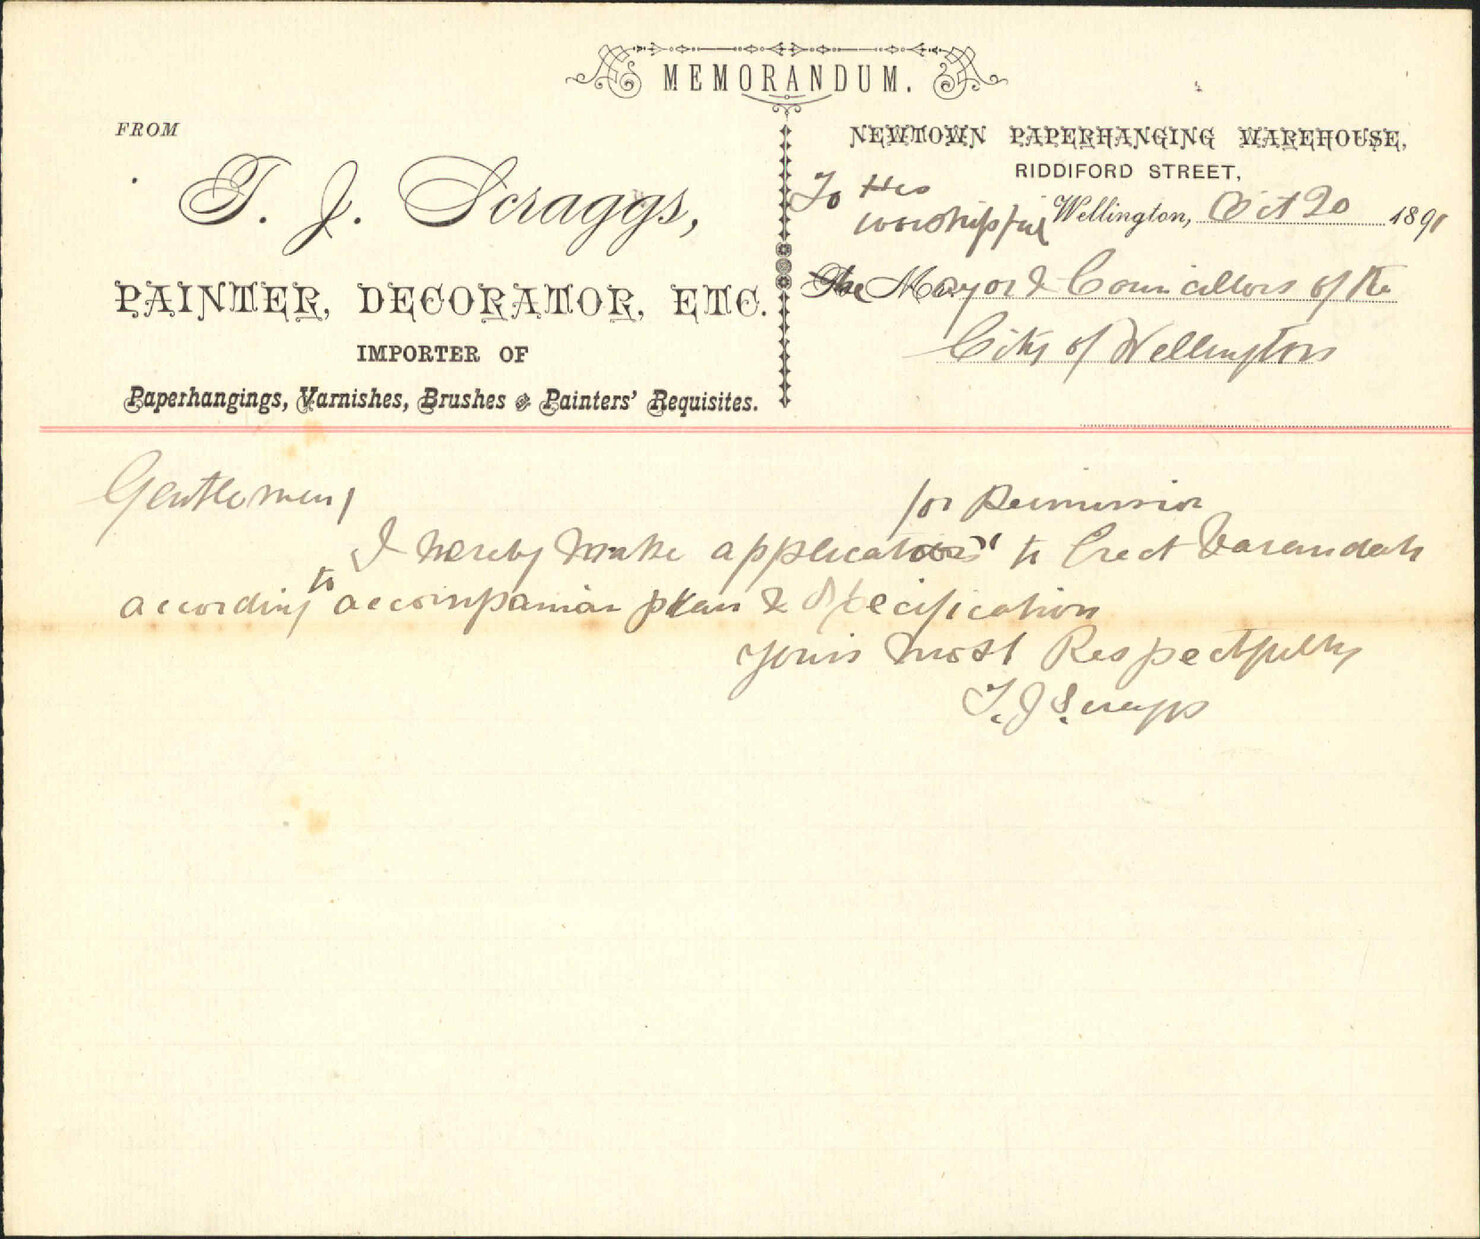 MEMORANDUM.
FROM
T. J. Scraggs,
PAINTER, DECORATOR, ETC.
IMPORTER OF
Paperhangings, Varnishes, Brushes & Painters' Requisites.
NEWTOWN PAPERHANGING WAREHOUSE,
RIDDIFORD STREET,
To His
Worshipful
Wellington, Oct 20 1891
The Mayor & Councillors of the
City of Wellington
Gentlemen,
for Permission
I hereby make application to Erect Varandah
according to accompanian plan & Specification
yours most Respectfully
T. J Scraggs